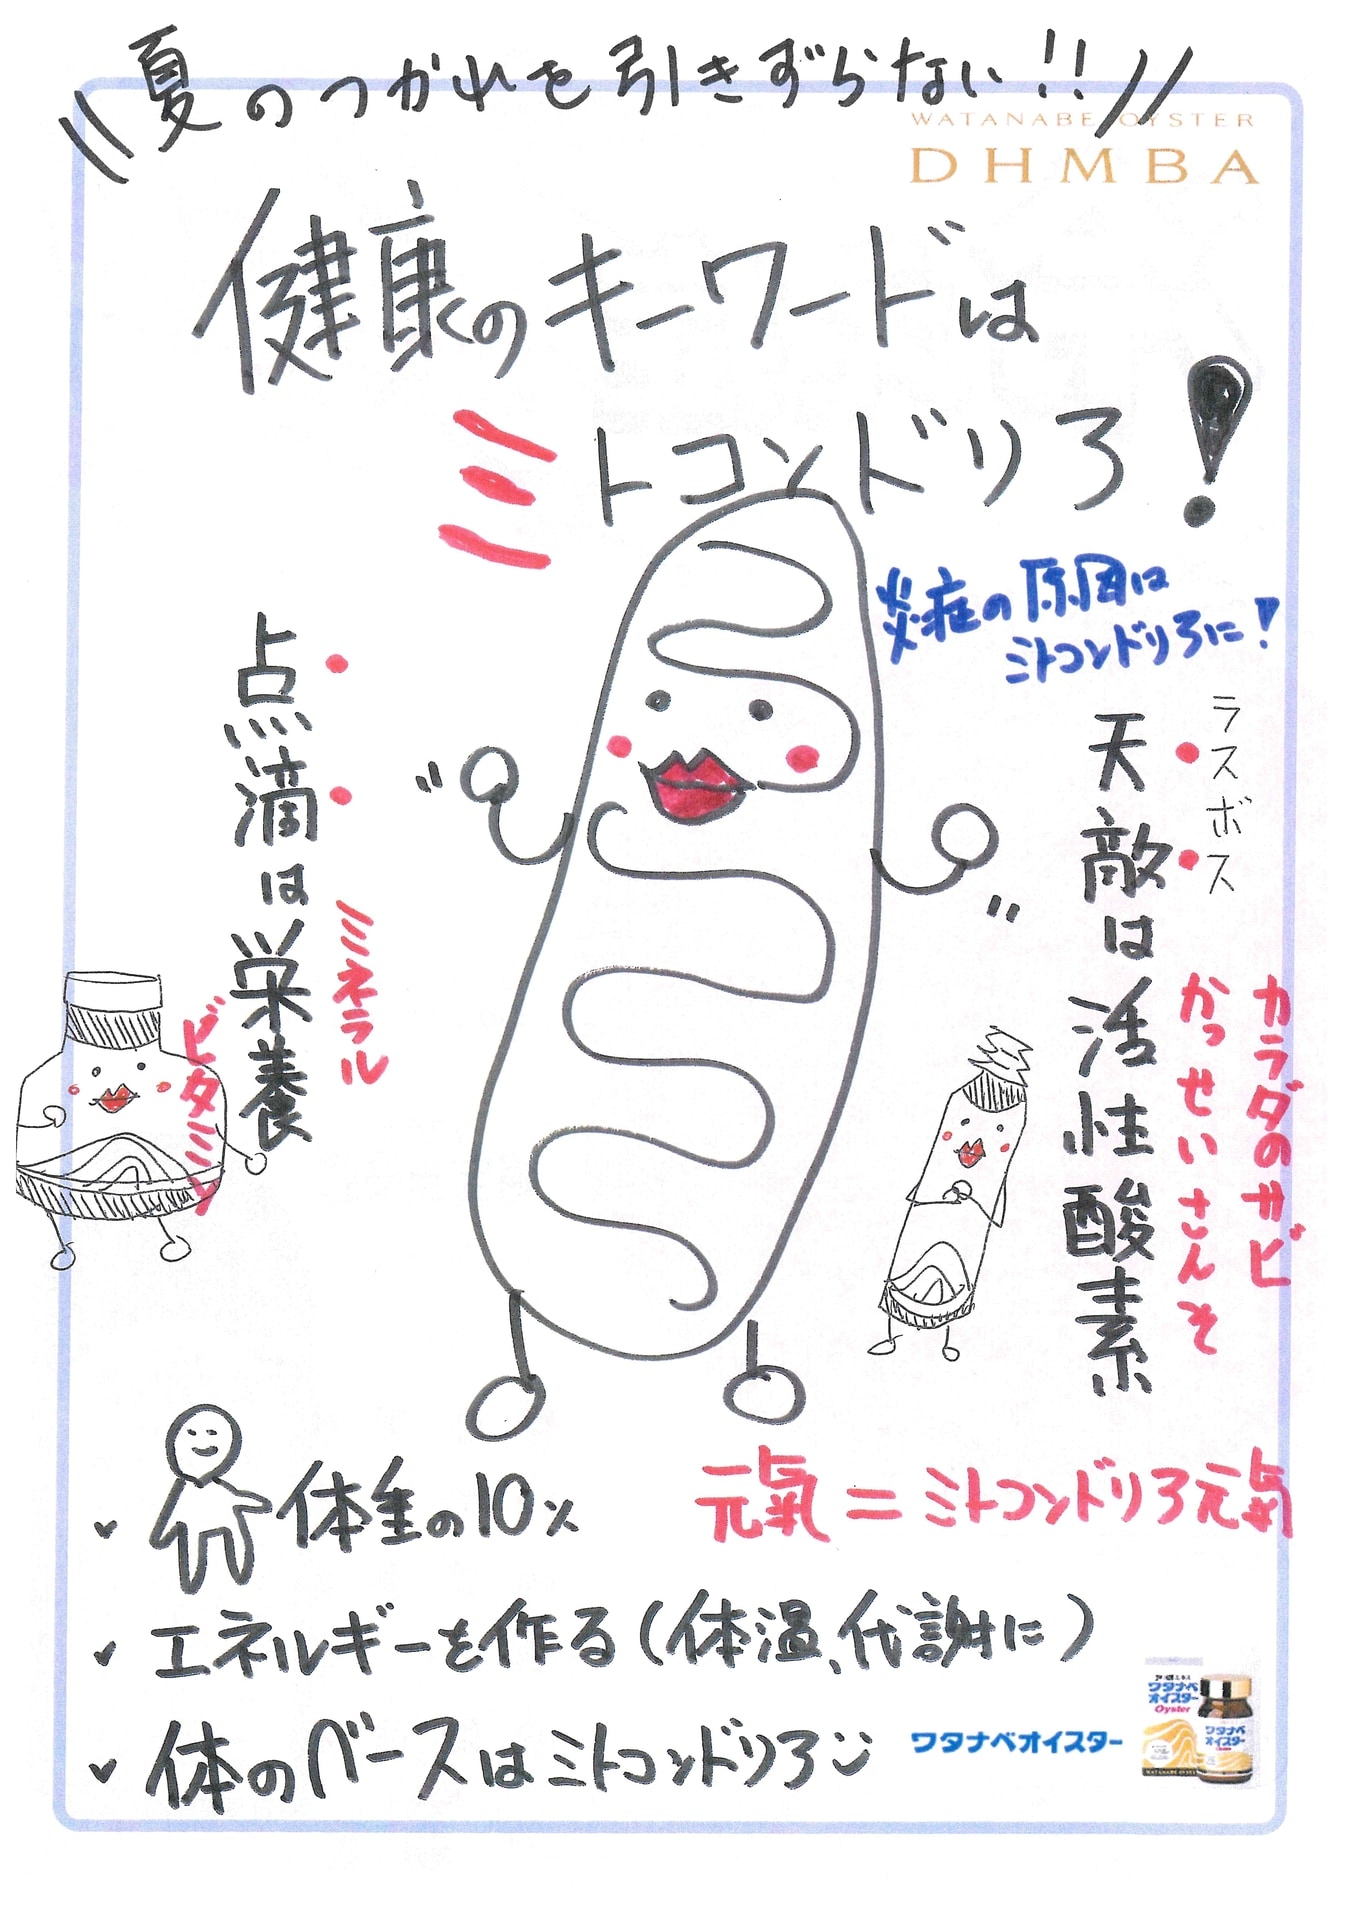 夏のつかれを引きずらない!!
WATANABE OYSTER
DHMBA
健康のキーワードは
ミトコンドリろ!
炎症の原因は
ミトコンドリろに!
ラスボス
天敵は活性酸素
かっせいさんそ
カラダのサビ
点滴は栄養
ミネラル
ビタミン
体重の10%
元氣=ミトコンドリろ元氣
エネルギーを作る(体温、代謝に)
体のベースはミトコンドリろ
ワタナベオイスター
ワタナベ
オイスター
Oyster
ワタナベ
オイスター